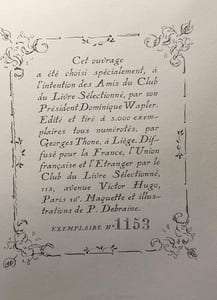 Cet ouvrage
a été choisi spécialement, à
l'intention des Amis du Club
du Livre Sélectionné, par son
Président Dominique Wapler.
Edité et tiré à 5.000 exem-
plaires tous numérotés, par
Georges Thone, à Liège. Dif-
fusé pour la France, l'Union
française et l'Etranger par le
Club du Livre Sélectionné,
113, avenue Victor Hugo,
Paris 16ᵉ. Maquette et illus-
trations de P. Debraine.
EXEMPLAIRE Nº 1153